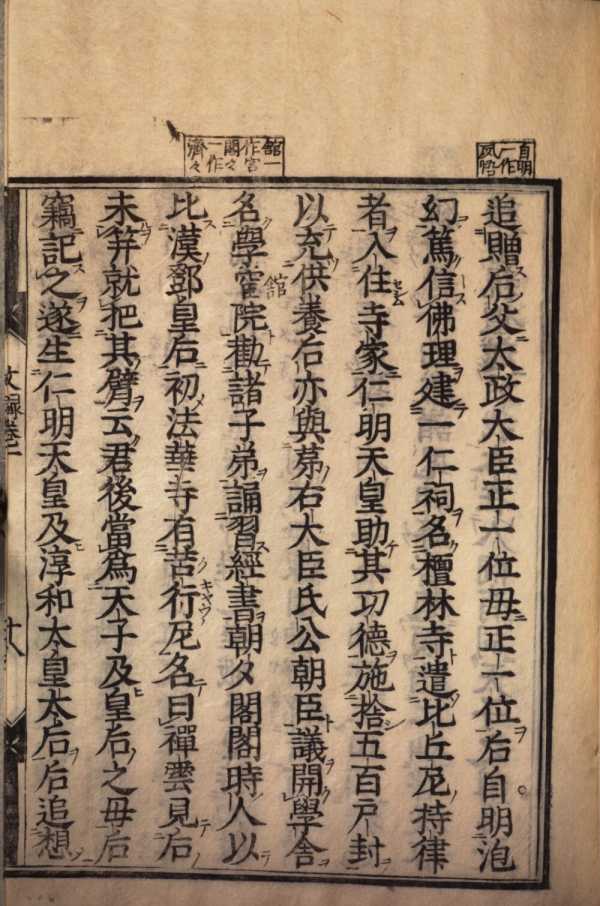 自明
一作
夙悟
追贈后父太政大臣正一位母正一位后自明泡
幻篤信佛理建一仁祠名檀林寺遣比丘尼持律
者入住寺家仁明天皇助其功德施捨五百戸封
以充供養后亦與弟右大臣氏公朝臣議開學舎
館一
作宮
一作
濟々
名學官院勸諸子弟誦習經書朝夕閤閤時人以
館
比漢鄧皇后初法華寺有苦行尼名曰禪雲見后
未笄就把其臂云君後當爲天子及皇后之母后
竊記之遂生仁明天皇及淳和太皇太后后追想